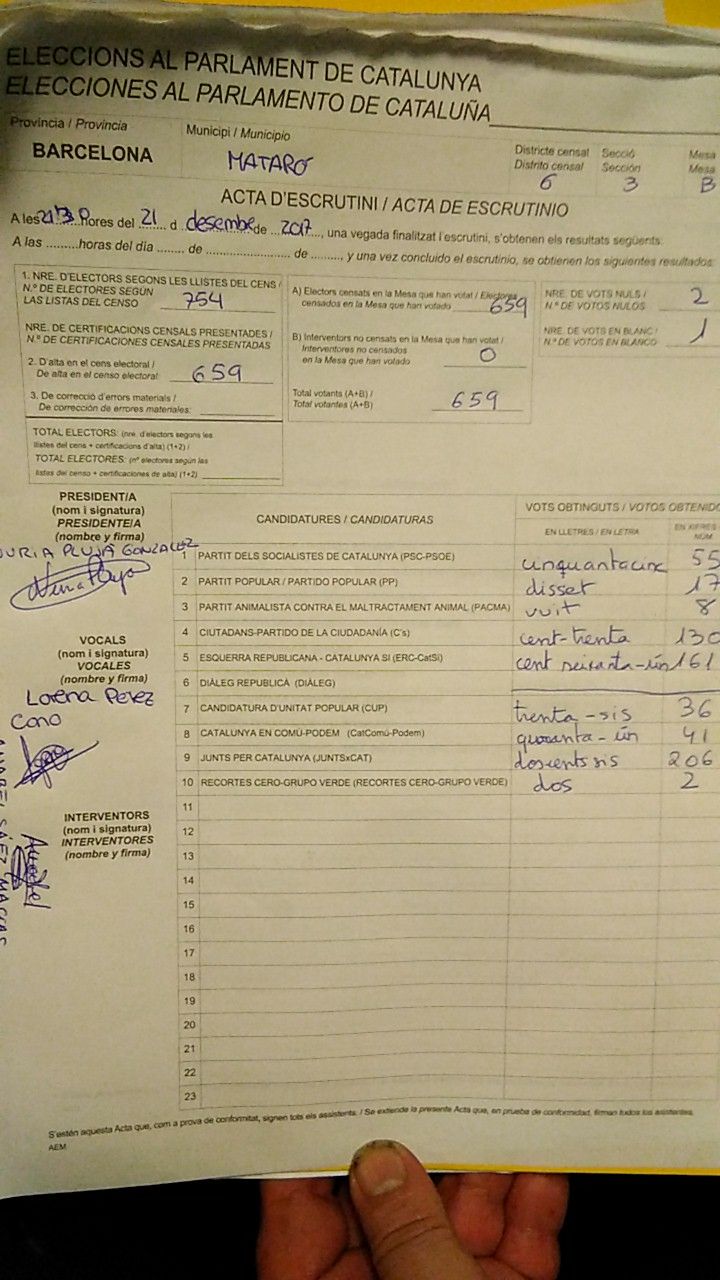 ELECCIONS AL PARLAMENT DE CATALUNYA
ELECCIONES AL PARLAMENTO DE CATALUÑA
Província / Provincia
BARCELONA
Municipi / Municipio
MATARÓ
Districte censal
Distrito censal
6
Secció
Sección
3
Mesa
Mesa
B
ACTA D'ESCRUTINI / ACTA DE ESCRUTINIO
A les ... hores del 21 d desembre de 2017, una vegada finalitzat l'escrutini, s'obtenen els resultats següents:
A las .........horas del día ........ de ........................ de ........., y una vez concluido el escrutinio, se obtienen los siguientes resultados:
1. NRE. D'ELECTORS SEGONS LES LLISTES DEL CENS /
N.º DE ELECTORES SEGÚN
LAS LISTAS DEL CENSO 754
NRE. DE CERTIFICACIONS CENSALS PRESENTADES /
N.º DE CERTIFICACIONES CENSALES PRESENTADAS
2. D'alta en el cens electoral /
De alta en el censo electoral: 659
3. De correcció d'errors materials /
De corrección de errores materiales:
TOTAL ELECTORS: (nre. d'electors segons les
llistes del cens + certificacions d'alta) (1+2) /
TOTAL ELECTORES: (nº electores según las
listas del censo + certificaciones de alta) (1+2)
A) Electors censats en la Mesa que han votat / Electores
censados en la Mesa que han votado 659
B) Interventors no censats en la Mesa que han votat /
Interventores no censados
en la Mesa que han votado 0
Total votants (A+B) /
Total votantes (A+B) 659
NRE. DE VOTS NULS /
N.º DE VOTOS NULOS 2
NRE. DE VOTS EN BLANC /
N.º DE VOTOS EN BLANCO 1
PRESIDENT/A
(nom i signatura)
PRESIDENTE/A
(nombre y firma)
NURIA PLUJÀ GONZALEZ
VOCALS
(nom i signatura)
VOCALES
(nombre y firma)
Lorena Perez
Cano
INTERVENTORS
(nom i signatura)
INTERVENTORES
(nombre y firma)
CANDIDATURES / CANDIDATURAS
VOTS OBTINGUTS / VOTOS OBTENIDO
EN LLETRES / EN LETRA
EN XIFRES
NÚM
1 PARTIT DELS SOCIALISTES DE CATALUNYA (PSC-PSOE) cinquantacinc 55
2 PARTIT POPULAR / PARTIDO POPULAR (PP) disset 17
3 PARTIT ANIMALISTA CONTRA EL MALTRACTAMENT ANIMAL (PACMA) vuit 8
4 CIUTADANS-PARTIDO DE LA CIUDADANÍA (C's) cent-trenta 130
5 ESQUERRA REPUBLICANA - CATALUNYA SÍ (ERC-CatSí) cent seixanta-ún 161
6 DIÀLEG REPUBLICÀ (DIÀLEG)
7 CANDIDATURA D'UNITAT POPULAR (CUP) trenta-sis 36
8 CATALUNYA EN COMÚ-PODEM (CatComú-Podem) quaranta-ún 41
9 JUNTS PER CATALUNYA (JUNTSxCAT) doscents sis 206
10 RECORTES CERO-GRUPO VERDE (RECORTES CERO-GRUPO VERDE) dos 2
11
12
13
14
15
16
17
18
19
20
21
22
23
S'estén aquesta Acta que, com a prova de conformitat, signen tots els assistents. / Se extiende la presente Acta que, en prueba de conformidad, firman todos los asistentes.
AEM